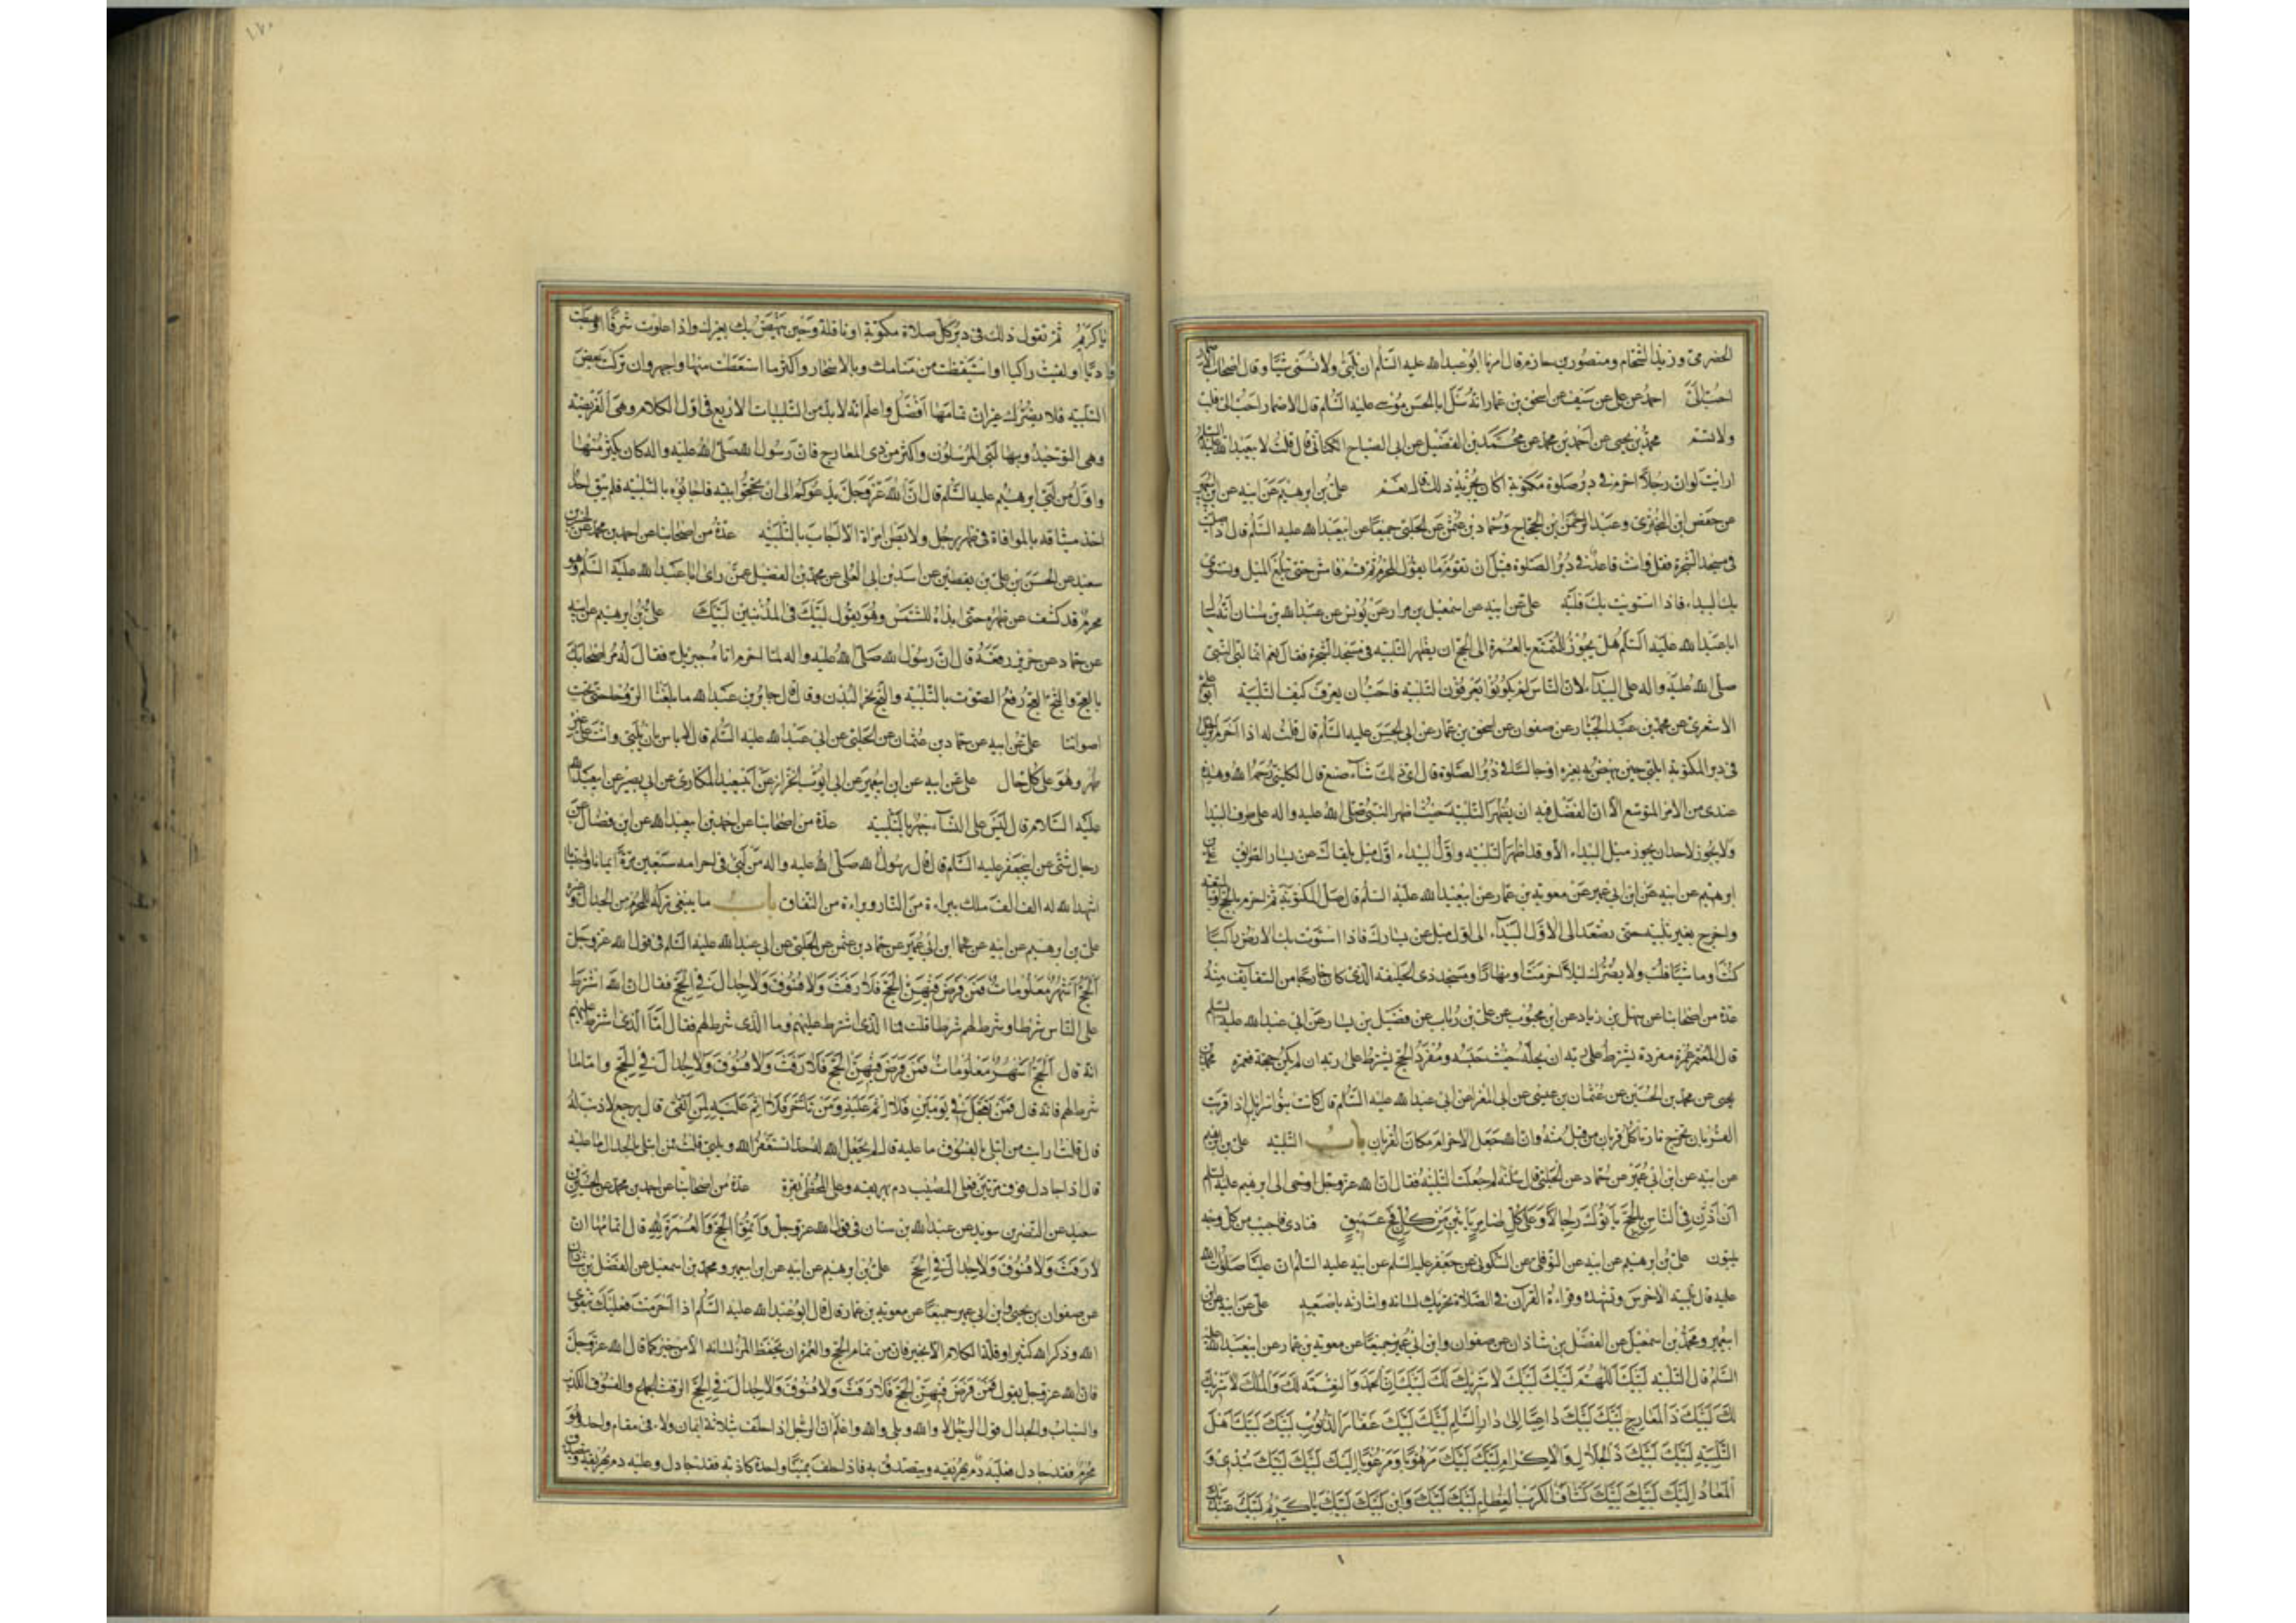 الحضرمى وزيد الشحام ومنصور بن حازم قال امرنا ابو عبدالله عليه السلم ان نلبى ولا نسمى شيئا وقال اصحاب الاضمار
احب الىّ احمد عن على عن سيف عن اسحق بن عمار انه سئل ابا الحسن موسى عليه السلم قال الاضمار احب الى فلبّ
ولا تسم محمد بن يحيى عن احمد بن محمد عن محمد بن الفضيل عن ابى الصباح الكنانى قال قلت لابى عبدالله عليه السلم
ارايت لو ان رجلا احرم فى دبر صلوة مكتوبة اكان يجزيه ذلك قال نعم على بن ابرهيم عن ابيه عن ابن ابى عمير
عن حفص بن البخترى وعبد الرحمن بن الحجاج وحماد بن عثمن عن الحلبى جميعا عن ابيعبدالله عليه السلم قال اذا صليت
فى مسجد الشجرة فقل وانت قاعد فى دبر الصلوة قبل ان تقوم ما يقول المحرم ثم قم فامش حتى تبلغ الميل وتستوى
بك البيداء فاذا استوت بك فلبّه على عن ابيه عن اسمعيل بن مرار عن يونس عن عبدالله بن سنان انه سال
ابا عبدالله عليه السلم هل يجوز للمتمتع بالعمرة الى الحج ان يظهر التلبية فى مسجد الشجرة فقال نعم انما لبى النبى
صلى الله عليه واله على البيداء لان الناس لم يكونوا يعرفون التلبية فاحب ان يعرف كيف التلبية ابو على
الاشعرى عن محمد بن عبد الجبار عن صفوان عن اسحق بن عمار عن ابى الحسن عليه السلم قال قلت له اذا احرم الرجل
فى دبر المكتوبة ايلبى حين ينهض به بعيره او جالسا فى دبر الصلوة قال اى ذلك شاء صنع قال الكلينى رحمه الله وهذا
عندى من الامر المتوسع الا ان الفضل فيه ان يظهر التلبية حيث اظهر النبى صلى الله عليه واله على طرف البيدا
ولا يجوز لاحد ان يجوز ميل البيداء الا وقد اظهر التلبية واول البيداء اول ميل يلقاك عن يسار الطريق على بن
ابرهيم عن ابيه عن ابن ابى عمير عن معوية بن عمار عن ابيعبدالله عليه السلم قال صل المكتوبة ثم احرم بالحج او بالمتعة
واخرج بغير تلبية حتى تصعد الى الاول البيداء الى اول ميل عن يسارك فاذا استوت بك الارض راكبا
كنت او ماشيا فلب ولا يضرك ليلا احرمت او نهارا ومسجد ذى الحليفة الذى كان خارجا من السقايف منه
عدة من اصحابنا عن سهل بن زياد عن ابن محبوب عن على بن رئاب عن فضيل بن يسار عن ابى عبدالله عليه السلم
قال المعتمر عمرة مفردة يشترط على ربه ان يحله حيث حبسه ومفرد الحج يشترط على ربه ان لم يكن حجة فعمرة محمد بن
يحيى عن محمد بن الحسين عن عثمان بن عيسى عن ابى المغرا عن ابى عبدالله عليه السلم قال كانت بنو اسرائيل اذا قربت
القربان تخرج نار تاكل قربان من قبل منه وان الله جعل الاحرام مكان القربان باب التلبية على بن ابرهيم
عن ابيه عن ابن ابى عمير عن حماد عن الحلبى قال سالته لم جعلت التلبية فقال ان الله عز وجل اوحى الى ابرهيم عليه السلم
ان اذن فى الناس بالحج يأتوك رجالا وعلى كل ضامر يأتين من كل فج عميق فنادى فاجيب من كل وجه
يلبون على بن ابرهيم عن ابيه عن النوفلى عن السكونى عن جعفر عليه السلم عن ابيه عليه السلم ان عليا صلوات الله
عليه قال تلبية الاخرس وتشهده وقراءة القران فى الصلاة تحريك لسانه واشارته باصبعه على عن ابيه عن ابن
ابى عمير ومحمد بن اسمعيل عن الفضل بن شاذان عن صفوان وابن ابى عمير جميعا عن معوية بن عمار عن ابيعبدالله عليه
السلم قال التلبية لبيك اللهم لبيك لبيك لا شريك لك لبيك ان الحمد والنعمة لك والملك لا شريك
لك لبيك ذا المعارج لبيك لبيك داعيا الى دار السلم لبيك لبيك غفار الذنوب لبيك لبيك اهل
التلبية لبيك لبيك ذا الجلال والاكرام لبيك لبيك مرهوبا ومرغوبا اليك لبيك لبيك تبدئ و
المعاد اليك لبيك لبيك كشاف الكرب العظام لبيك لبيك عبدك وابن عبديك لبيك لبيك يا كريم
يا كريم ثم تقول ذلك فى دبر كل صلاة مكتوبة او نافلة وحين ينهض بك بعيرك واذا علوت شرفا او هبطت
واديا او لقيت راكبا او استيقظت من منامك وبالاسحار واكثر ما استطعت منها واجهر وان تركت بعض
التلبية فلا يضرك غير ان تمامها افضل واعلم انه لا بد من التلبيات الاربع فى اول الكلام وهى الفريضة
وهى التوحيد وبها لبى المرسلون واكثر من ذى المعارج فان رسول الله صلى الله عليه واله كان يكثر منها
واول من لبى ابرهيم عليه السلم قال ان الله عز وجل يدعوكم الى ان تحجوا بيته فاجابوه بالتلبية فلم يبق احد
اخذ ميثاقه بالموافاة فى ظهر رجل ولا بطن امراة الا اجاب بالتلبية عدة من اصحابنا عن احمد بن محمد عن الحسين بن
سعيد عن الحسن بن على بن يقطين عن اسد بن ابى العلى عن محمد بن الفضيل عمن راى ابا عبدالله عليه السلم وهو
محرم قد كشف عن ظهره حتى ابداه للشمس وهو يقول لبيك فى المذنبين لبيك على بن ابرهيم عن ابيه
عن حماد عن حريز رفعه قال ان رسول الله صلى الله عليه واله لما احرم اتاه جبريل فقال له مر اصحابك
بالعج والثج العج رفع الصوت بالتلبية والثج نحر البدن وقال قال جابر بن عبدالله ما بلغنا الروحا حتى بحت
اصواتنا على عن ابيه عن حماد بن عثمان عن الحلبى عن ابى عبدالله عليه السلم قال لا باس بان تلبى وانت على غير
طهر وهو على كل حال على عن ابيه عن ابن ابيعمير عن ابى ايوب الخراز عن ابيسعيد المكارى عن ابى بصير عن ابيعبدالله
عليه السلام قال ليس على النساء جهر بالتلبية عدة من اصحابنا عن احمد بن ابيعبدالله عن ابن فضال عن
رجال شتى عن ابيجعفر عليه السلم قال قال رسول الله صلى الله عليه واله من لبى فى احرامه سبعين مرة ايمانا واحتسابا
اشهد الله له الف الف ملك ببراءة من النار وبراءة من النفاق باب ما ينبغى تركه للمحرم من الجدال وغيره
على بن ابرهيم عن ابيه عن ابن ابى عمير عن حماد بن عثمن عن الحلبى عن ابى عبدالله عليه السلم فى قول الله عز وجل
الحج اشهر معلومات فمن فرض فيهن الحج فلا رفث ولا فسوق ولا جدال فى الحج فقال ان الله اشترط
على الناس شرطا وشرط لهم شرطا قلت فما الذى اشترط عليهم وما الذى شرط لهم فقال اما الذى اشترط عليهم
انه قال الحج اشهر معلومات فمن فرض فيهن الحج فلا رفث ولا فسوق ولا جدال فى الحج واما ما
شرط لهم فانه قال فمن تعجل فى يومين فلا اثم عليه ومن تأخر فلا اثم عليه لمن اتقى قال يرجع لا ذنب له
قال قلت ارايت من ابتلى بالفسوق ما عليه قال لم يجعل الله له حدا يستغفر الله ويلبى قلت فمن ابتلى بالجدال ما عليه
قال اذا جادل فوق مرتين فعلى المصيب دم يهريقه وعلى المخطئ بقرة عدة من اصحابنا عن احمد بن محمد عن الحسين بن
سعيد عن النضر بن سويد عن عبدالله بن سنان فى قول الله عز وجل واتموا الحج والعمرة لله قال اتمامها ان
لا رفث ولا فسوق ولا جدال فى الحج على بن ابرهيم عن ابيه عن ابن ابيعمير ومحمد بن اسمعيل عن الفضل بن شاذان
عن صفوان بن يحيى وابن ابى عمير جميعا عن معوية بن عمار قال قال ابو عبدالله عليه السلم اذا احرمت فعليك بتقوى
الله وذكر الله كثيرا وقلة الكلام الا بخير فان من تمام الحج والعمرة ان يحفظ المرء لسانه الا من خير كما قال الله عز وجل
فان الله عز وجل يقول فمن فرض فيهن الحج فلا رفث ولا فسوق ولا جدال فى الحج الرفث الجماع والفسوق الكذب
والسباب والجدال قول الرجل لا والله وبلى والله واعلم ان الرجل اذا حلف بثلاثة ايمان ولاء فى مقام واحد وهو
محرم فقد جادل فعليه دم يهريقه ويتصدق به فاذا حلف يمينا واحدة كاذبة فقد جادل وعليه دم يهريقه ويتصدق به